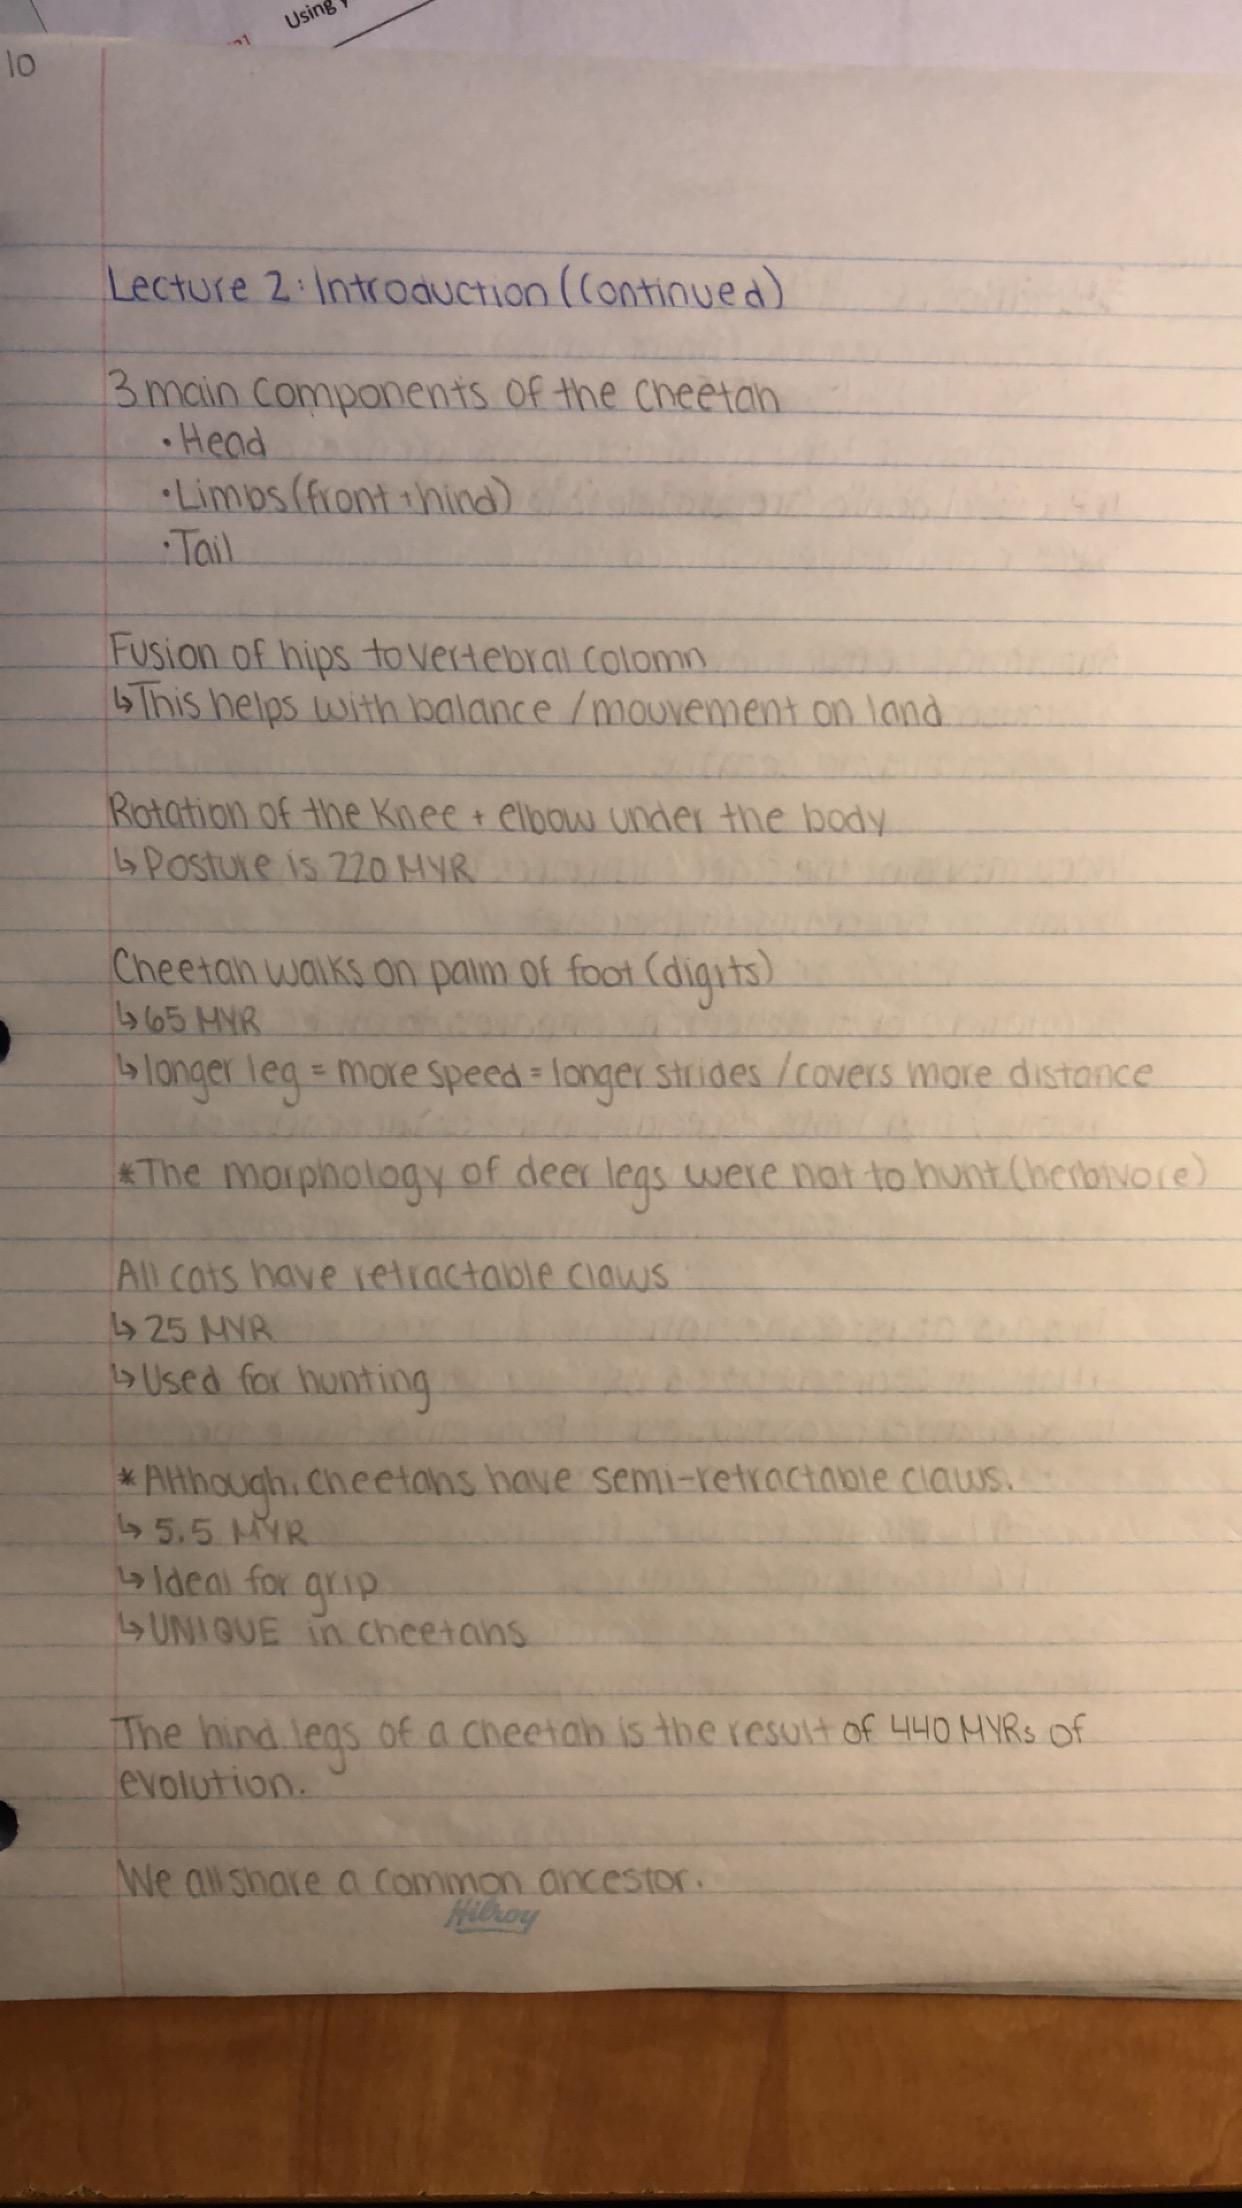 Using
10
Lecture 2: Introduction (Continued)
3 main components of the cheetah
• Head
• Limbs (front + hind)
• Tail
Fusion of hips to vertebral colomn
↳ This helps with balance / mouvement on land
Rotation of the knee + elbow under the body
↳ Posture is 220 MYR
Cheetah walks on palm of foot (digits)
↳ 65 MYR
↳ longer leg = more speed = longer strides / covers more distance
* The morphology of deer legs were not to hunt (herbivore)
All cats have retractable claws
↳ 25 MYR
↳ Used for hunting
* Although, cheetahs have semi-retractable claws.
↳ 5.5 MYR
↳ Ideal for grip
↳ UNIQUE in cheetahs
The hind legs of a cheetah is the result of 440 MYRs of
evolution.
We all share a common ancestor.
Hilroy